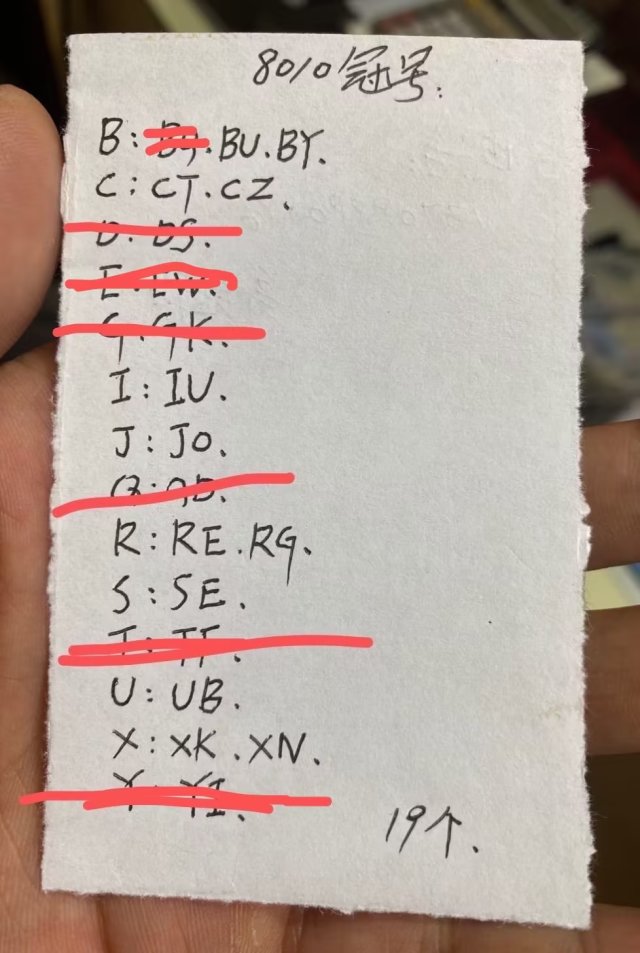 8010冠号.
B: BU.BY.
C: CT.CZ.
D: DS.
E: EW.
G: GK.
I: IU.
J: JO.
R: RE.RG.
S: SE.
U: UB.
X: XK.XN.
Y: YI.
19个.